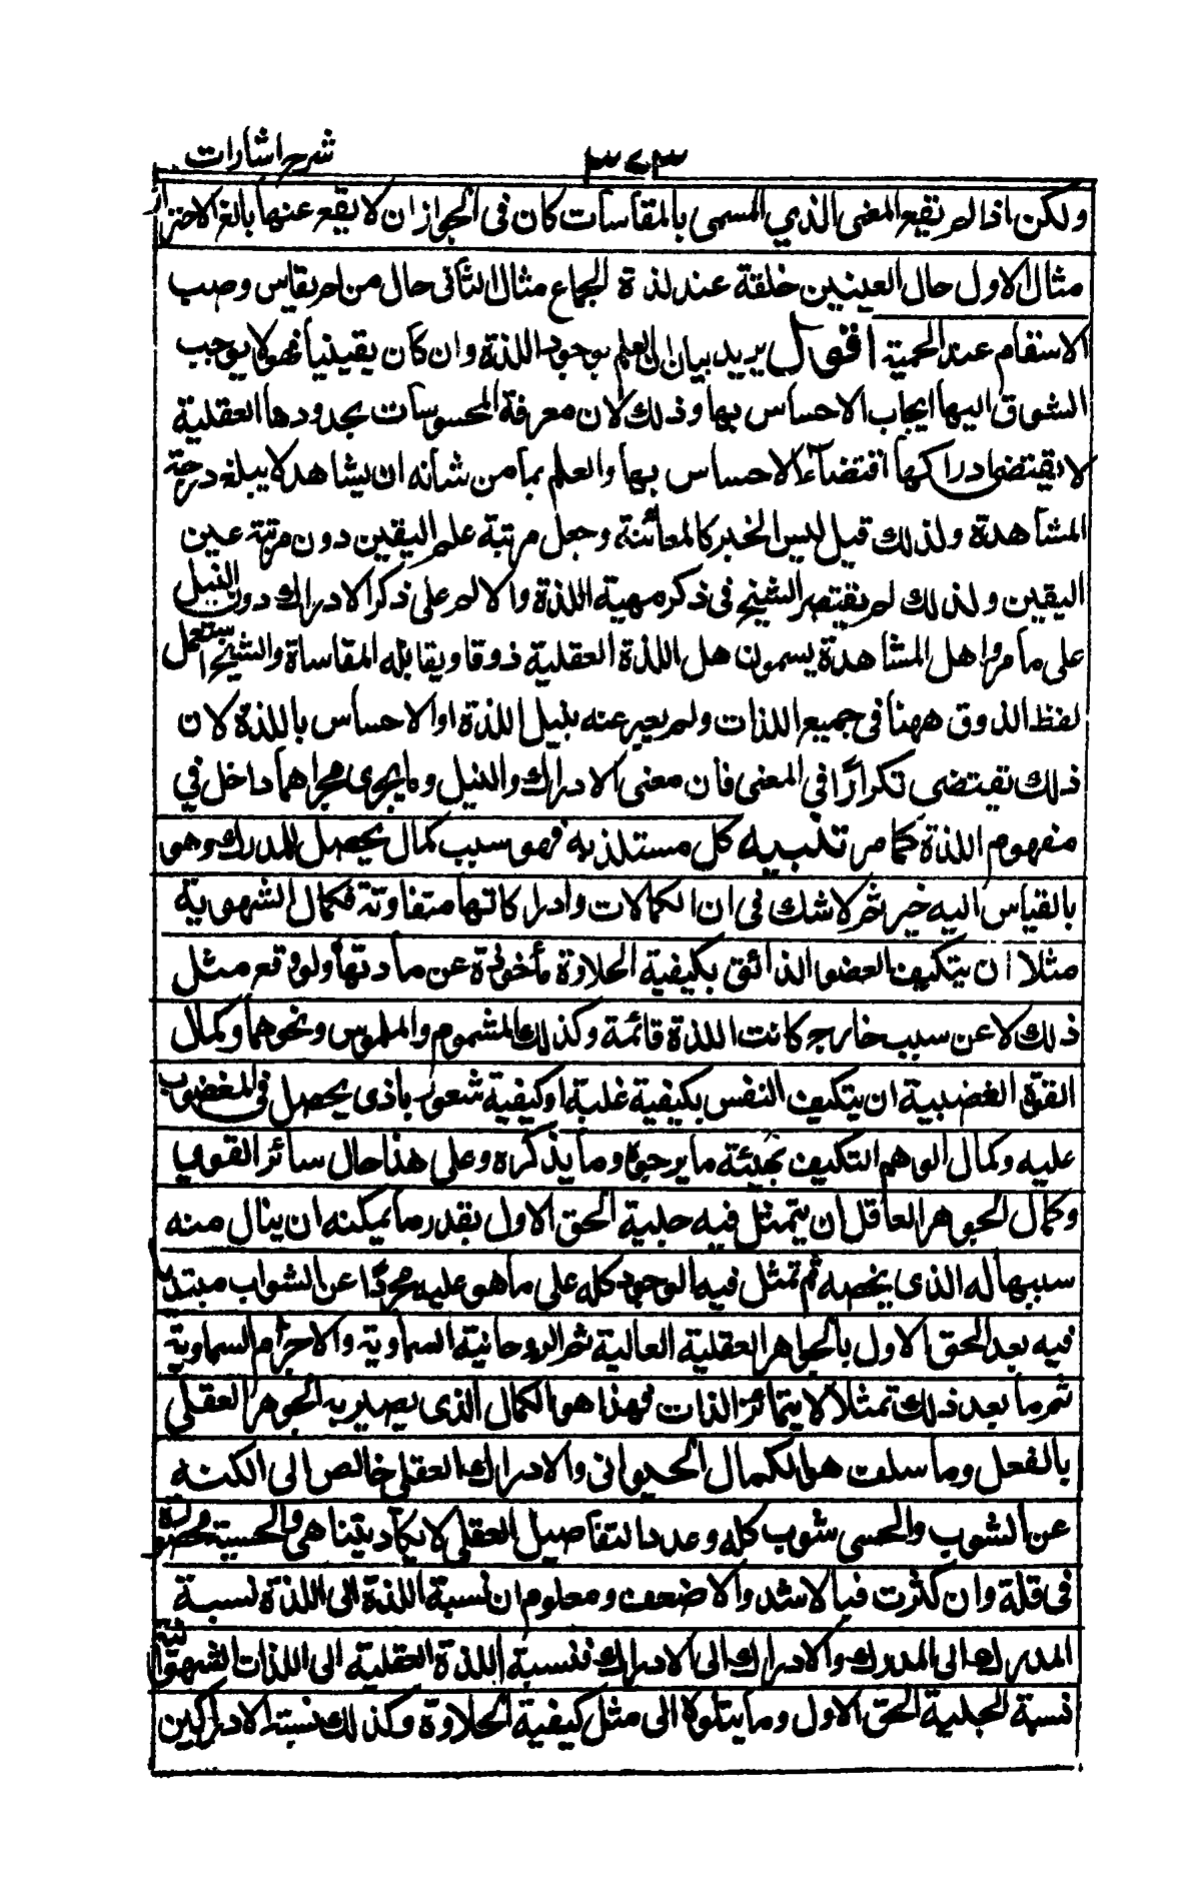 شرح اشارات
٣٤٣
ولكن اذا لم يقع المعنى الذي المسمى بالمقاسات كان فى الجواز ان لا يقع عنها بالغ الاحتراز
مثال الاول حال العينين خلقة عند لذة الجماع مثال الثانى حال من لم يقاس وصب
الاسقام عند الحمية اقول يريد بيان ان العلم بوجود اللذة وان كان يقينيا فهو لا يوجب
الشوق اليها ايجاب الاحساس بها وذلك لان معرفة المحسوسات بحدودها العقلية
لا يقتضى ادراكها اقتضاء الاحساس بها والعلم بما من شانه ان يشاهد لا يبلغ درجة
المشاهدة ولذلك قيل ليس الخبر كالمعائنة وجعل مرتبة علم اليقين دون مرتبة عين
اليقين ولذلك لم يقتصر الشيخ فى ذكر مهية اللذة والالم على ذكر الادراك دون النيل
على ما مر واهل المشاهدة يسمون هل اللذة العقلية ذوقا ويقابله المقاساة والشيخ استعمل
لفظ الذوق ههنا فى جميع اللذات ولم يعبر عنه بنيل اللذة او الاحساس باللذة لان
ذلك يقتضى تكرارًا في المعنى فان معنى الادراك والنيل وما يجرى مجراهما داخل في
مفهوم اللذة كما مر تنبيه كل مستلذ به فهو سبب كمال يحصل للمدرك وهو
بالقياس اليه خير ثم لا شك فى ان الكمالات وادراكاتها متفاوتة فكمال الشهوية
مثلا ان يتكيف العضو الذائق بكيفية الحلاوة مأخوذة عن مادتها ولو وقع مثل
ذلك لا عن سبب خارج كانت اللذة قائمة وكذلك المشموم والملموس ونحوهما وكمال
القوة الغضبية ان يتكيف النفس بكيفية غلبة او كيفية شعور باذى يحصل فى المغضوب
عليه وكمال الوهم التكيف بهيئة ما يرجوه وما يذكره وعلى هذا حال سائر القوى
وكمال الجوهر العاقل ان يتمثل فيه جلية الحق الاول بقدر ما يمكنه ان ينال منه
ببهائه الذى يخصه ثم تمثل فيه الوجود كله على ما هو عليه مجردًا عن الشواب مبتديا
فيه بعد الحق الاول بالجواهر العقلية العالية ثم الروحانية السماوية والاجرام السماوية
ثم ما بعد ذلك تمثلا لا يتمائز الذات فهذا هو الكمال الذى يصير به الجوهر العقلى
بالفعل وما سلف هو الكمال الحيوانى والادراك العقلى خالص الى الكنه
عن الشوب والحسى شوب كله وعدد التفاصيل العقلى لا يكاد يتناهى والحسية محصورة
فى قلة وان كثرت فبالاشد والاضعف ومعلوم ان نسبة اللذة الى اللذة نسبة
المدرك الى المدرك والادراك الى الادراك فنسبة اللذة العقلية الى اللذات الشهوانية
نسبة الجلية الحق الاول وما يتلوه الى مثل كيفية الحلاوة وكذلك نسبة الادراكين